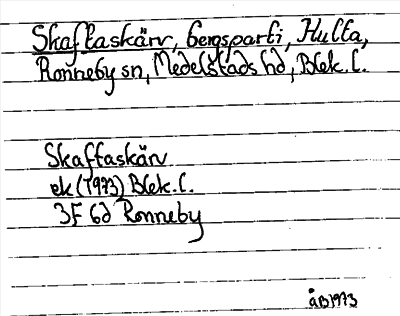 Skaftaskärv, bergsparti, Hulta,
Ronneby sn, Medelstads hd, Blek. l.
Skaftaskärv
ek (1973) Blek. l.
3F 6d Ronneby
åB1973